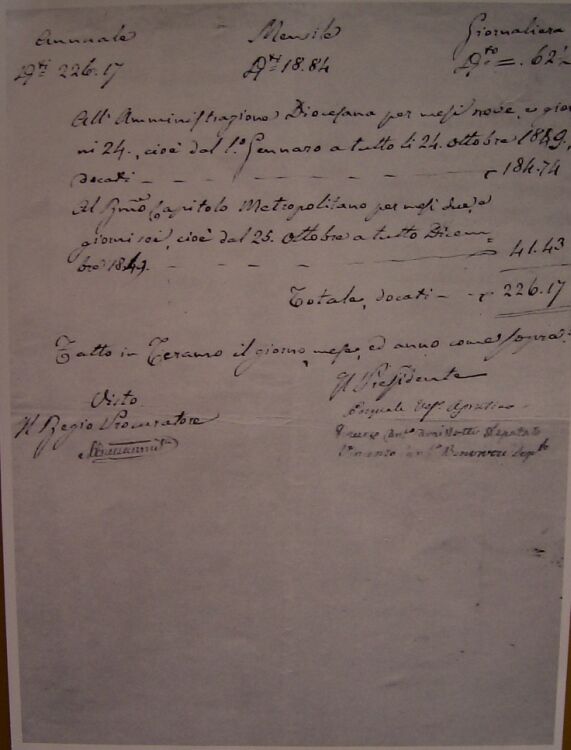 Annuale Mensile Giornaliera
D.ti 226.17 D.ti 18.84 D.to =. 62½
All' Amministrazione Diocesana per mesi nove, e gior
ni 24., cioè dal 1.º Gennaro a tutto li 24. Ottobre 1849.,
docati - - - - - - 184.74
Al R.mo Capitolo Metropolitano per mesi due, e
giorni sei, cioè dal 25. Ottobre a tutto Dicem=
bre 1849. - - - - - - 41.43
Totale, docati - - 226.17
Fatto in Teramo il giorno, mese, ed anno come sopra.
Il Presidente
Visto
Pasquale
Il Regio Procuratore
Deputato
Vincenzo